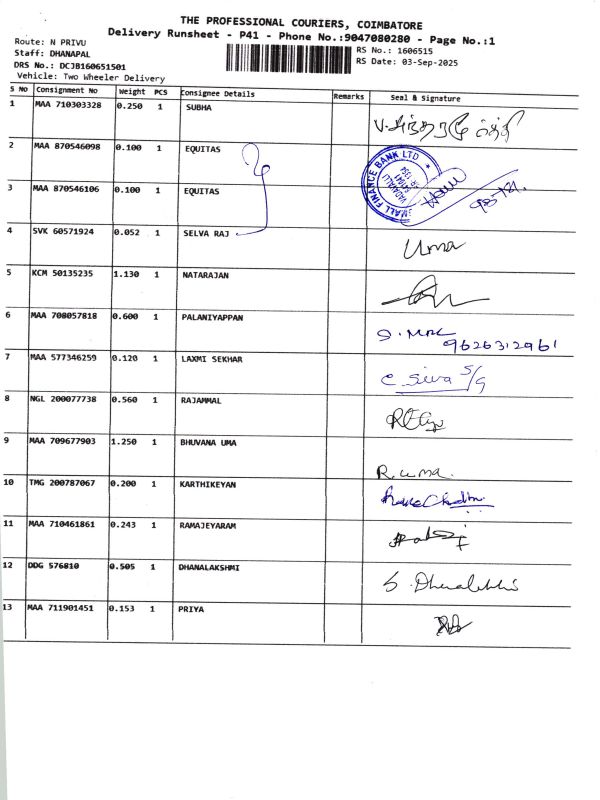 THE PROFESSIONAL COURIERS, COIMBATORE
Delivery Runsheet - P41 - Phone No.:9047080280 - Page No.:1
Route: N PRIVU
RS No.: 1606515
Staff: DHANAPAL
RS Date: 03-Sep-2025
DRS No.: DCJB160651501
Vehicle: Two Wheeler Delivery
S No Consignment No Weight PCS Consignee Details Remarks Seal & Signature
1 MAA 710303328 0.250 1 SUBHA
2 MAA 870546098 0.100 1 EQUITAS
SMALL FINANCE BANK LTD
VADAVALLI
3 MAA 870546106 0.100 1 EQUITAS
4 SVK 60571924 0.052 1 SELVA RAJ Uma
5 KCM 50135235 1.130 1 NATARAJAN
6 MAA 708057818 0.600 1 PALANIYAPPAN
9626312961
7 MAA 577346259 0.120 1 LAXMI SEKHAR C. Siva S/G
8 NGL 200077738 0.560 1 RAJAMMAL
9 MAA 709677903 1.250 1 BHUVANA UMA R. uma.
10 TMG 200787067 0.200 1 KARTHIKEYAN
11 MAA 710461861 0.243 1 RAMAJEYARAM
12 DDG 576810 0.505 1 DHANALAKSHMI
13 MAA 711901451 0.153 1 PRIYA